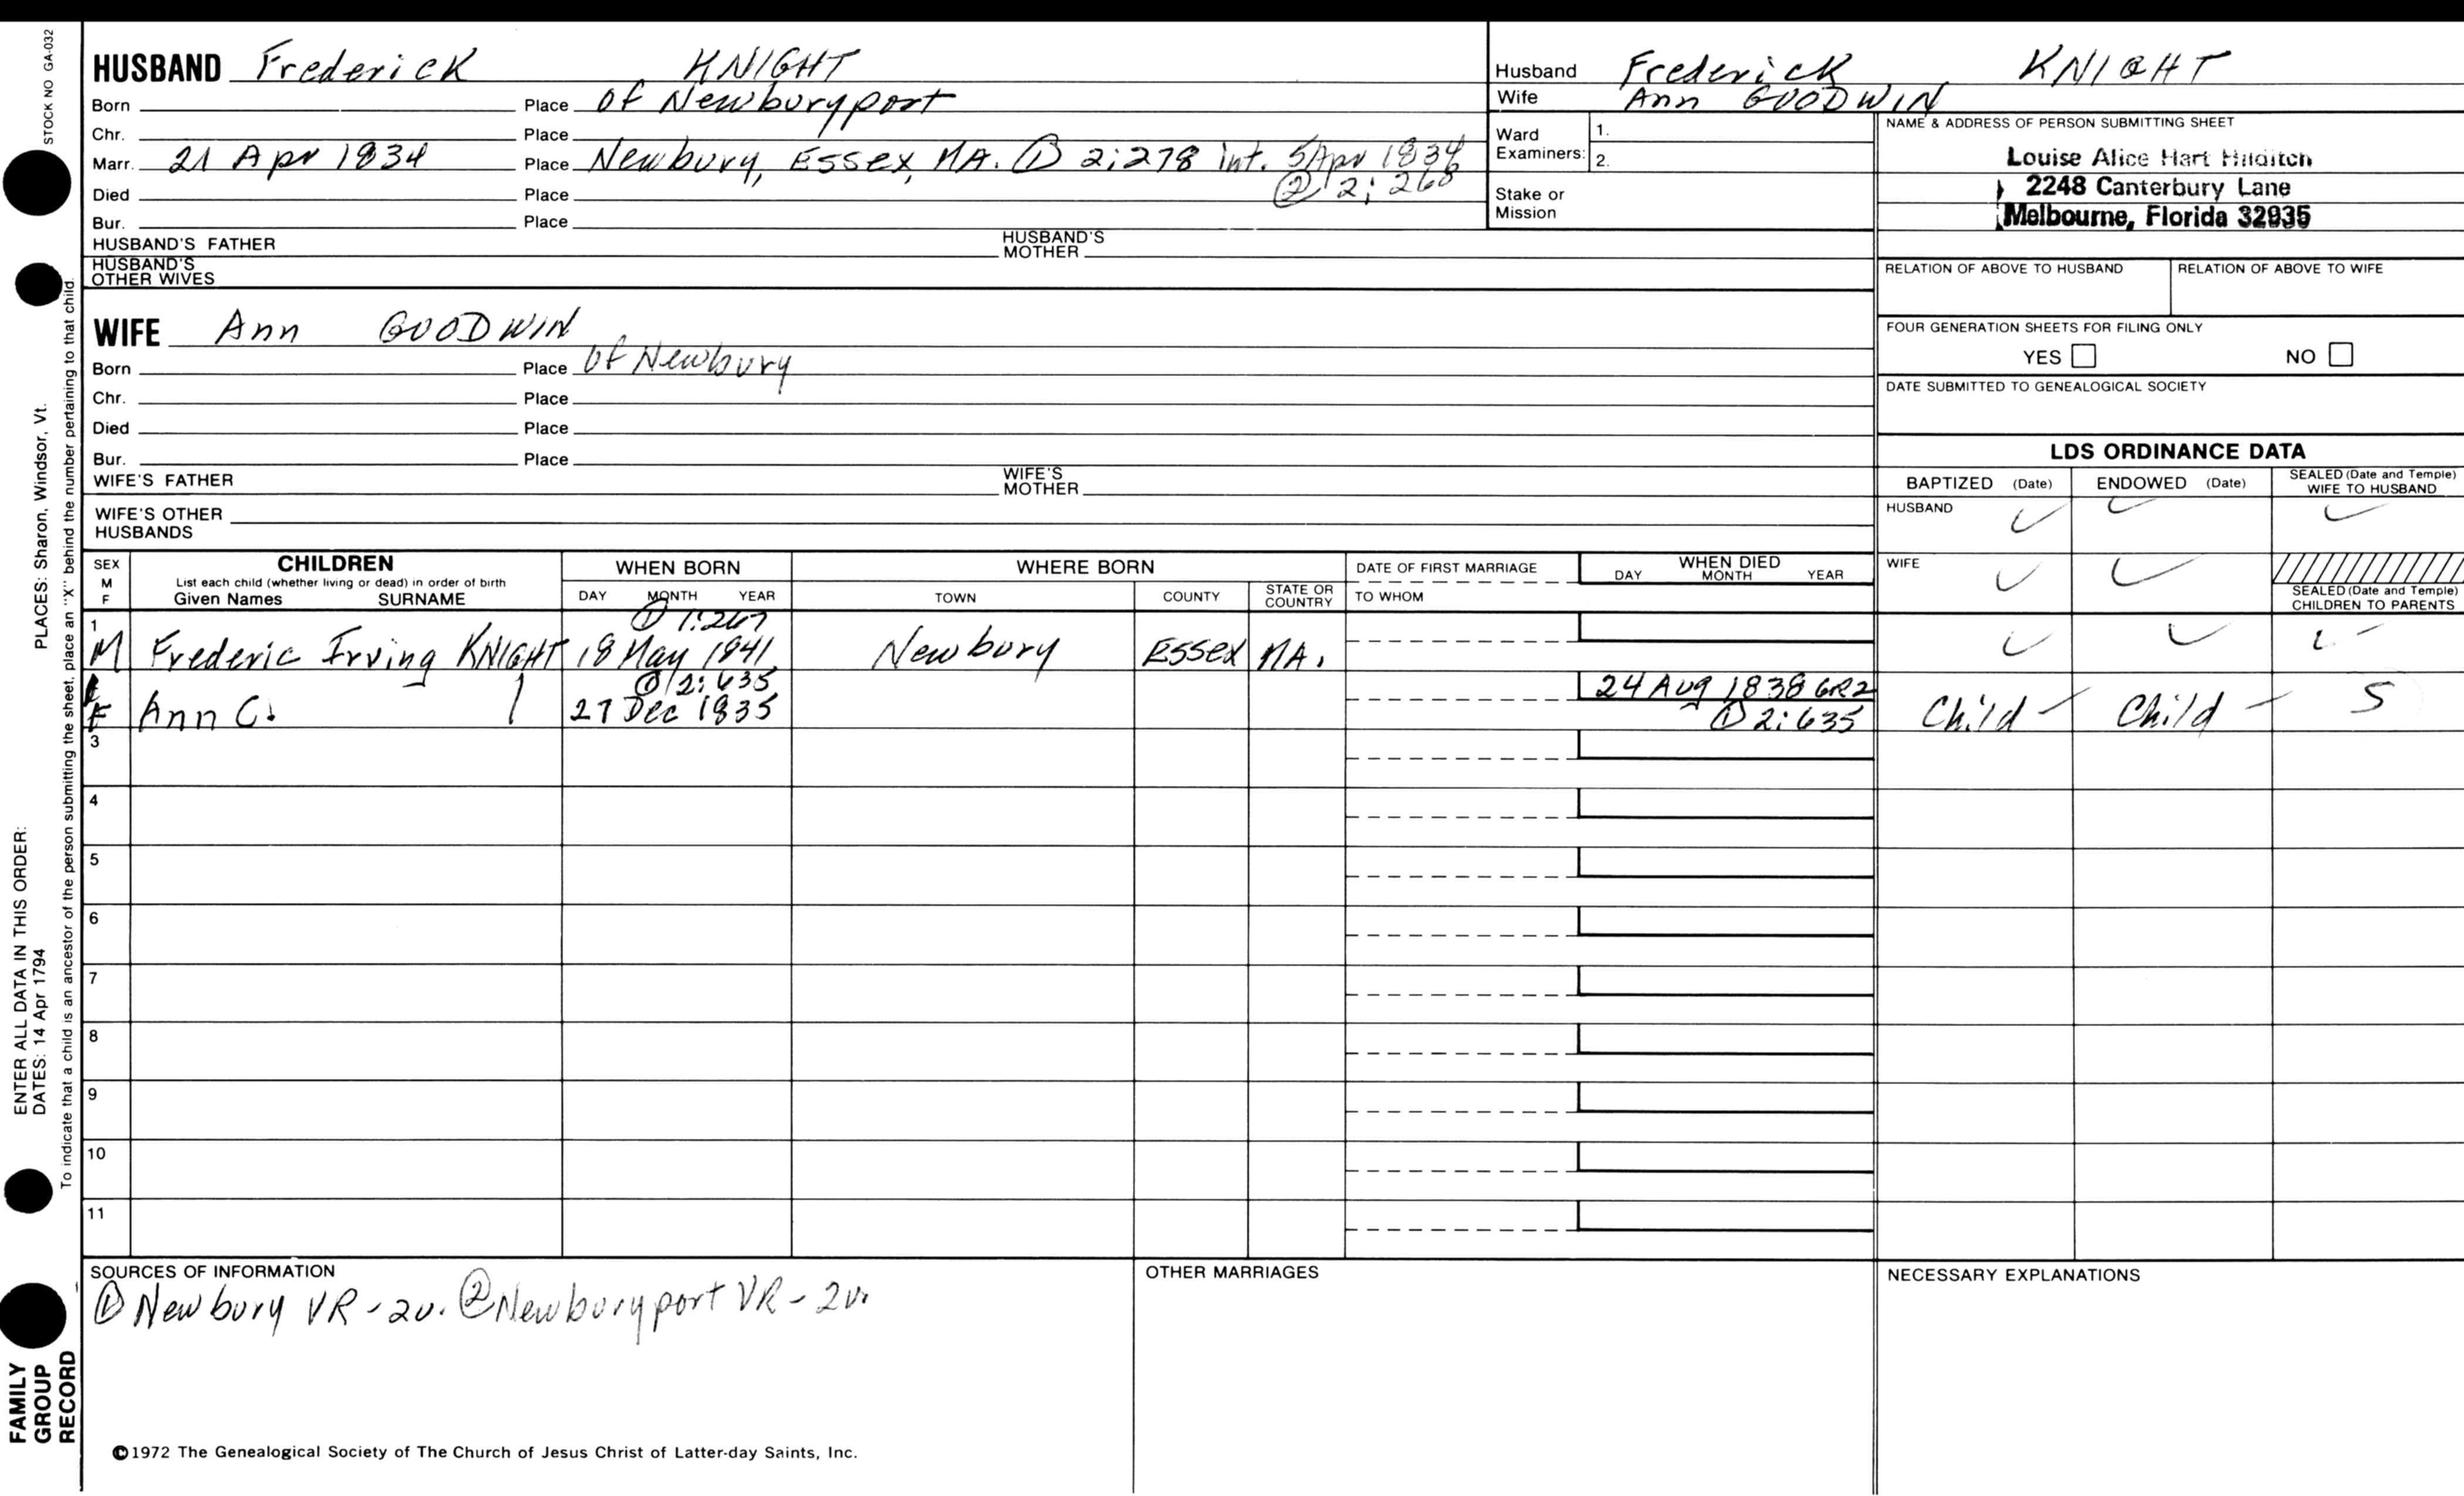 STOCK NO GA-032
PLACES: Sharon, Windsor, Vt.
ENTER ALL DATA IN THIS ORDER:
DATES: 14 Apr 1794
To indicate that a child is an ancestor of the person submitting the sheet, place an "X" behind the number pertaining to that child.
FAMILY
GROUP
RECORD
HUSBAND Frederick KNIGHT
Born Place of Newburyport
Chr. Place
Marr. 21 Apr 1834 Place Newbury, Essex, MA. ① 2:278 int. 5 Apr 1834
② 2: 268
Died Place
Bur. Place
HUSBAND'S FATHER HUSBAND'S MOTHER
HUSBAND'S OTHER WIVES
WIFE Ann GOODWIN
Born Place of Newbury
Chr. Place
Died Place
Bur. Place
WIFE'S FATHER WIFE'S MOTHER
WIFE'S OTHER HUSBANDS
Husband Frederick KNIGHT
Wife Ann GOODWIN
Ward Examiners: 1.
2.
Stake or Mission
NAME & ADDRESS OF PERSON SUBMITTING SHEET
Louise Alice Hart Hilditch
2248 Canterbury Lane
Melbourne, Florida 32935
RELATION OF ABOVE TO HUSBAND RELATION OF ABOVE TO WIFE
FOUR GENERATION SHEETS FOR FILING ONLY
YES NO
DATE SUBMITTED TO GENEALOGICAL SOCIETY
LDS ORDINANCE DATA
BAPTIZED (Date) ENDOWED (Date) SEALED (Date and Temple) WIFE TO HUSBAND
HUSBAND ✓ ✓ ✓
WIFE ✓ ✓
SEALED (Date and Temple) CHILDREN TO PARENTS
SEX M F
CHILDREN
List each child (whether living or dead) in order of birth
Given Names SURNAME
WHEN BORN
DAY MONTH YEAR
WHERE BORN
TOWN COUNTY STATE OR COUNTRY
DATE OF FIRST MARRIAGE
TO WHOM
WHEN DIED
DAY MONTH YEAR
① 1:267
1 M Frederic Irving KNIGHT 18 May 1841 Newbury Essex MA. ✓ ✓ ✓
① 2:635 24 Aug 1838 GR2
F Ann C. 27 Dec 1835 ① 2:635 Child Child S
3
4
5
6
7
8
9
10
11
SOURCES OF INFORMATION
① Newbury VR - 2v. ② Newburyport VR - 2v.
OTHER MARRIAGES
NECESSARY EXPLANATIONS
©1972 The Genealogical Society of The Church of Jesus Christ of Latter-day Saints, Inc.